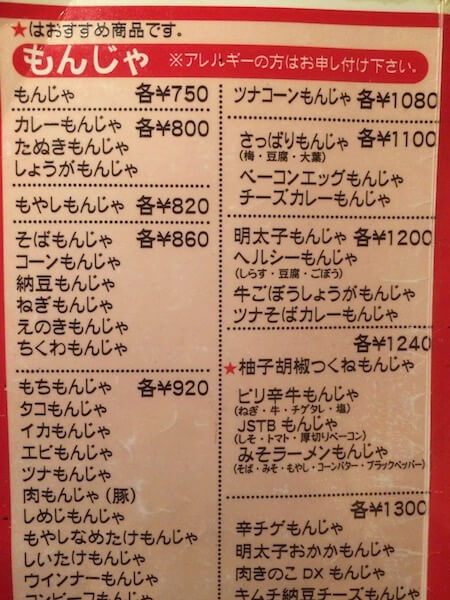 ★はおすすめ商品です.
もんじゃ ※アレルギーの方はお申し付け下さい。
もんじゃ 各¥750
カレーもんじゃ 各¥800
たぬきもんじゃ
しょうがもんじゃ
もやしもんじゃ 各¥820
そばもんじゃ 各¥860
コーンもんじゃ
納豆もんじゃ
ねぎもんじゃ
えのきもんじゃ
ちくわもんじゃ
もちもんじゃ 各¥920
タコもんじゃ
イカもんじゃ
エビもんじゃ
ツナもんじゃ
肉もんじゃ(豚)
しめじもんじゃ
もやしなめたけもんじゃ
しいたけもんじゃ
ウインナーもんじゃ
コンビーフもんじゃ
ツナコーンもんじゃ 各¥1080
さっぱりもんじゃ 各¥1100
(梅・豆腐・大葉)
ベーコンエッグもんじゃ
チーズカレーもんじゃ
明太子もんじゃ 各¥1200
ヘルシーもんじゃ
(しらす・豆腐・ごぼう)
牛ごぼうしょうがもんじゃ
ツナそばカレーもんじゃ
各¥1240
★柚子胡椒つくねもんじゃ
ピリ辛牛もんじゃ
(ねぎ・牛・チゲタレ・塩)
JSTBもんじゃ
(しそ・トマト・厚切りベーコン)
みそラーメンもんじゃ
(そば・みそ・もやし・コーンバター・ブラックペッパー)
各¥1300
辛チゲもんじゃ
明太子おかかもんじゃ
肉きのこDXもんじゃ
キムチ納豆チーズもんじゃ